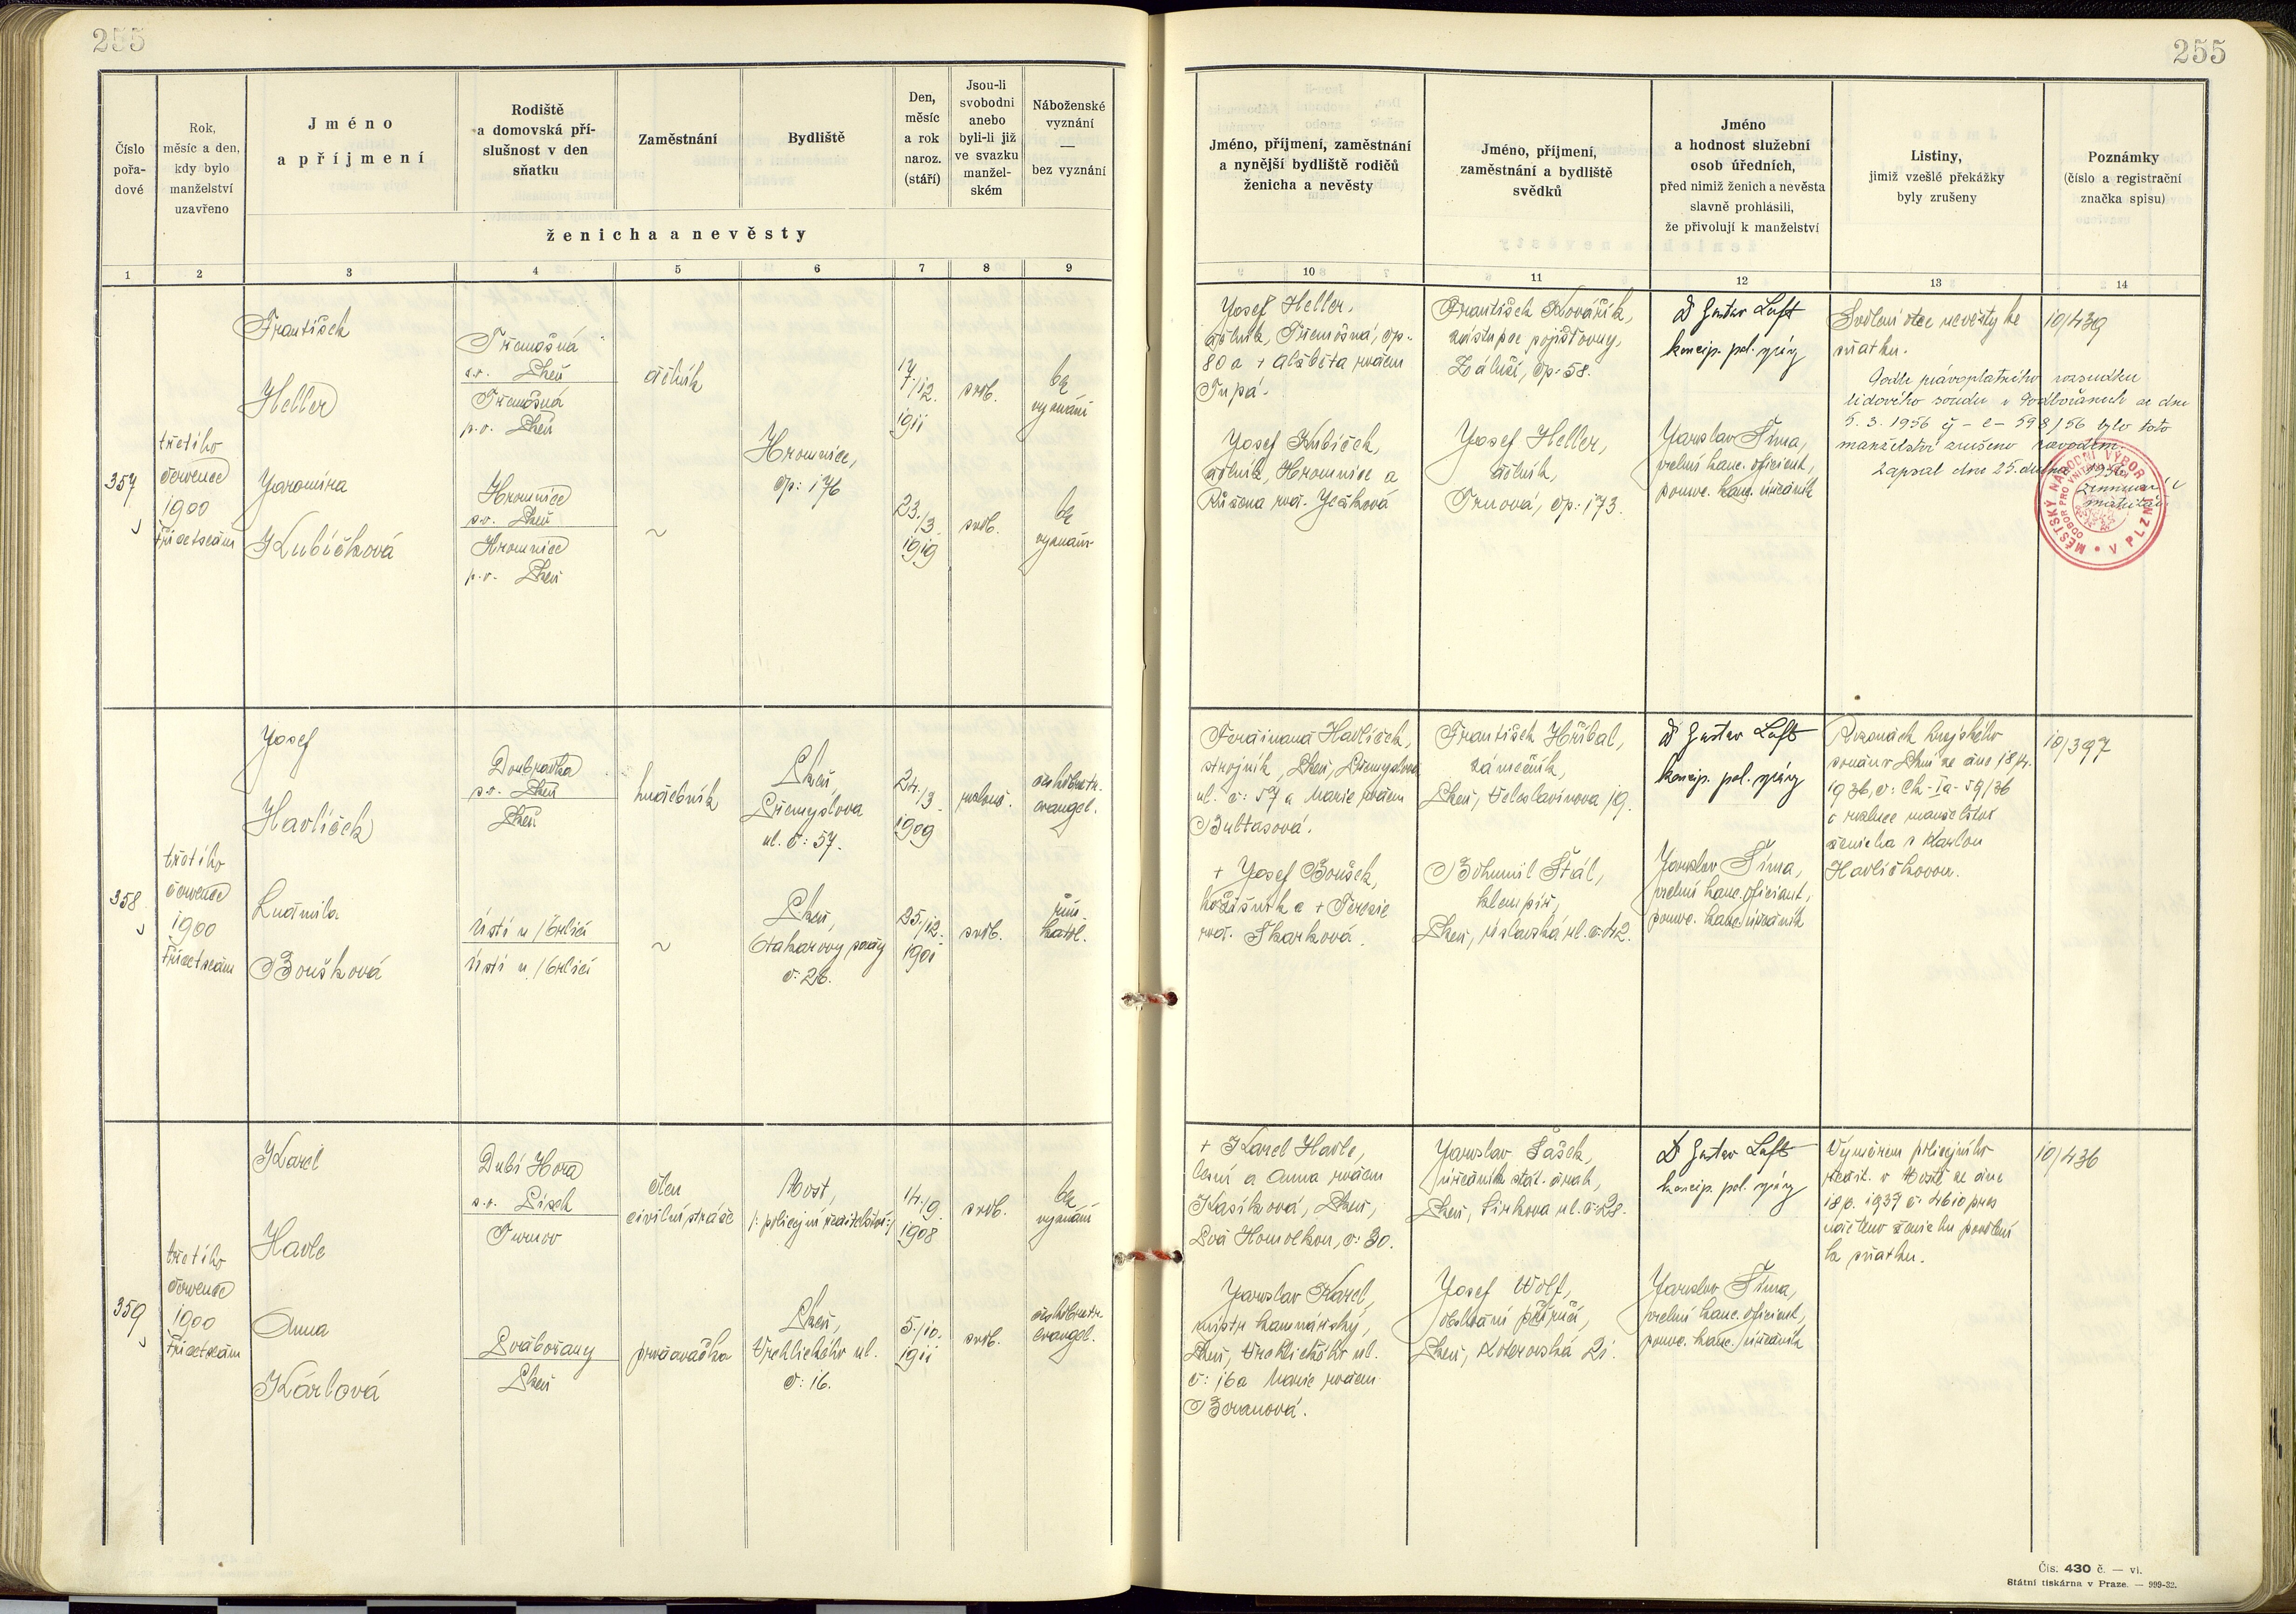 255
255
Číslo
pořa-
dové
Rok,
měsíc a den,
kdy bylo
manželství
uzavřeno
Jméno
a příjmení
Rodiště
a domovská pří-
slušnost v den
sňatku
Zaměstnání
Bydliště
Den,
měsíc
a rok
naroz.
(stáří)
Jsou-li
svobodni
anebo
byli-li již
ve svazku
manžel-
ském
Náboženské
vyznání
—
bez vyznání
ženicha a nevěsty
Jméno, příjmení, zaměstnání
a nynější bydliště rodičů
ženicha a nevěsty
Jméno, příjmení,
zaměstnání a bydliště
svědků
Jméno
a hodnost služební
osob úředních,
před nimiž ženich a nevěsta
slavně prohlásili,
že přivolují k manželství
Listiny,
jimiž vzešlé překážky
byly zrušeny
Poznámky
(číslo a registrační
značka spisu)
1 2 3 4 5 6 7 8 9
10 11 12 13 14
357
třetího
července
1900
třicetsedm
František
Heller
Jaromíra
Kubíčková
Třemošná
s.o. Plzeň
Třemošná
p.o. Plzeň
Hromnice
s.o. Plzeň
Hromnice
p.o. Plzeň
dělník
~
Hromnice,
čp: 176
14
/12.
1911
23.
/3.
1919
svob.
svob.
bez
vyznání
bez
vyznání
Josef Heller,
dělník, Třemošná, čp.
80 a + Alžběta rozen
Tupá.
Josef Kubíček,
dělník, Hromnice a
Růžena roz. Ježková
František Kovářík,
zástupce pojišťovny,
Záluží, čp: 58.
Josef Heller,
dělník,
Trnová, čp: 173.
Dr Gustav Luft
koncip. pol. správy
Jaroslav Tůma,
vrchní kanc. oficiant,
pomoc. kanc. úředník
Svolení otce nevěsty ke
sňatku.
Podle pravoplatného rozsudku
lidového soudu v Podbořanech ze dne
5. 3. 1956 čj - c - 598/56 bylo toto
manželství zrušeno rozvodem.
Zapsal dne 25. dubna 1956
matrikář
10/439
MĚSTSKÝ NÁRODNÍ VÝBOR V PLZNI
ODBOR PRO VNITŘNÍ
358
třetího
července
1900
třicetsedm
Josef
Havlíček
Ludmila
Boušková
Doubravka
s.o. Plzeň
Plzeň
Ústí n/Orlicí
Ústí n/Orlicí
hudebník
~
Plzeň,
Přemyslova
ul. č: 57.
Plzeň,
Otakarovy sady
č: 26.
24./3.
1909
25./12.
1901
rozlouč.
svob.
českobratr.
evangel.
řím.
katol.
Ferdinand Havlíček,
strojník, Plzeň, Přemyslova
ul. č: 57 a Marie rozen
Bubtasová.
+ Josef Boušek,
kožišník a + Terezie
roz. Škarková.
František Hříbal,
zámečník,
Plzeň, Veleslavínova 19.
Bohumil Štál,
klempíř,
Plzeň, úslavská ul. č: 42.
Dr Gustav Luft
koncip. pol. správy
Jaroslav Tůma,
vrchní kanc. oficiant,
pomoc. kanc. úředník
Rozsudek krajského
soudu v Plzni ze dne 18/4.
1936, č: Ck-Ia-59/36
o rozluce manželství
ženicha s Karlou
Havlíčkovou.
10/397
359
třetího
července
1900
třicetsedm
Karel
Havle
Anna
Karlová
Dubí Hora
s.o. Písek
Turnov
Poděbořany
Plzeň
člen
civilní stráže
prodavačka
Most,
/: policejní ředitelství:/
Plzeň,
Vrchlického ul.
č: 16.
14./9.
1908
5./10.
1911
svob.
svob.
bez
vyznání
českobratr.
evangel.
+ Karel Havle,
lesní a Anna rozen
Kasíková, Plzeň,
Pod Homolkou, č: 30.
Jaroslav Karel,
mistr kamnářský,
Plzeň, Vrchlického ul.
č: 16 a Marie rozen
Beranová.
Jaroslav Šašek,
úředník stát. drah,
Plzeň, Jirkova ul. č: 28.
Josef Wolf,
obchodní příručí,
Plzeň, Koterovská 21.
Dr Gustav Luft
koncip. pol. správy
Jaroslav Tůma,
vrchní kanc. oficiant,
pomoc. kanc. úředník
Výměrem policejního
ředit. v Mostě ze dne
18/6. 1937 č: 4610 pres
uděleno ženichu povolení
ke sňatku.
10/436
Čís. 430 č. — vi.
Státní tiskárna v Praze. — 999-32.